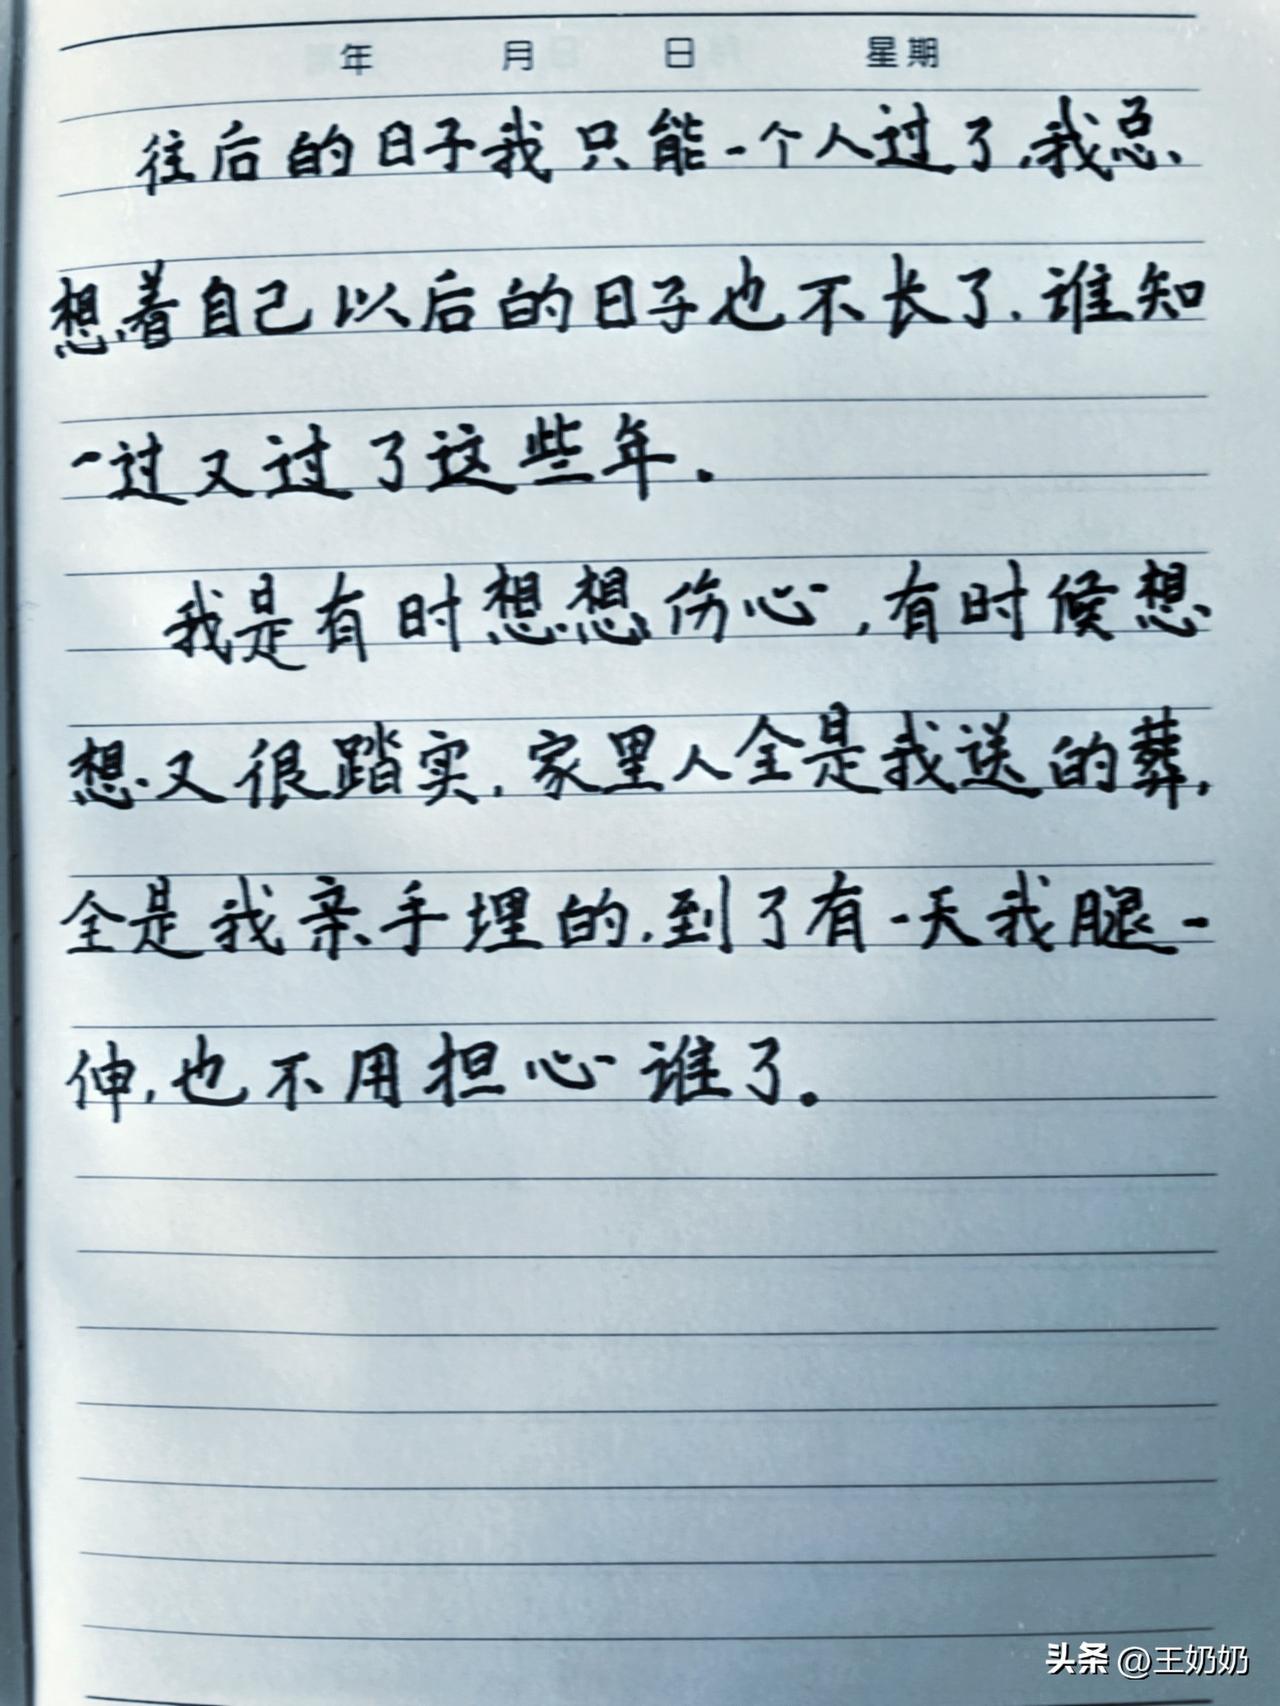 年 月 日 星期
往后的日子我只能一个人过了,我总
想着自己以后的日子也不长了.谁知
一过又过了这些年.
我是有时想想伤心,有时候想
想又很踏实.家里人全是我送的葬,
全是我亲手埋的.到了有一天我腿一
伸,也不用担心谁了.
头条 @王奶奶